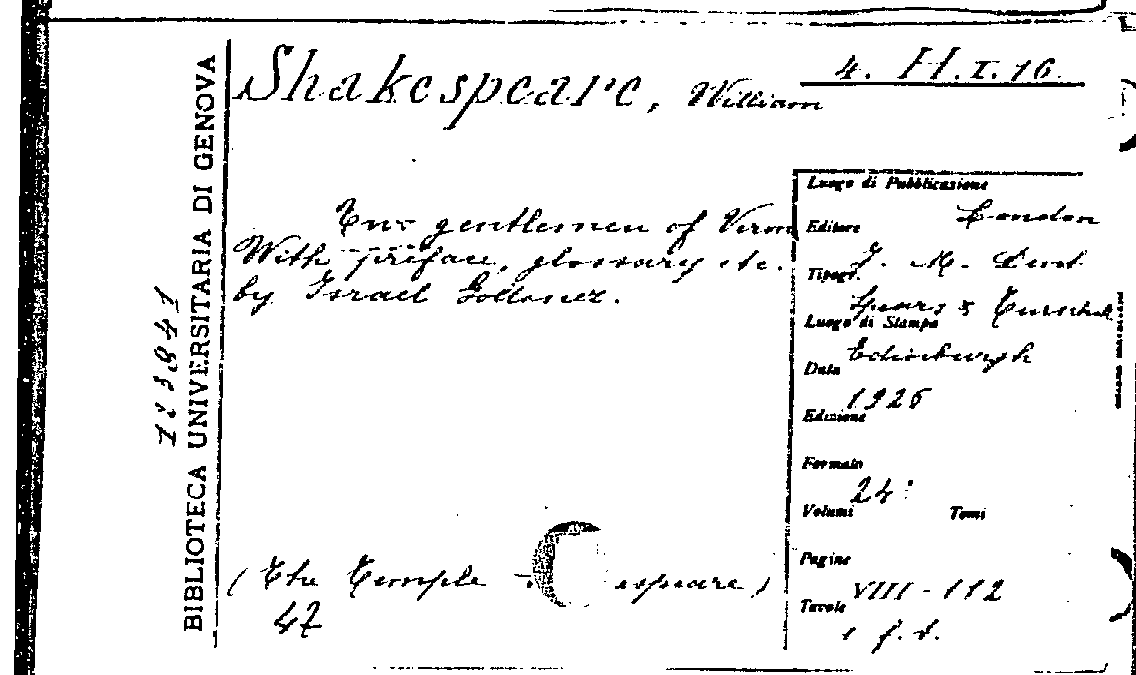 BIBLIOTECA UNIVERSITARIA DI GENOVA
123841
Shakespeare, William
4. H.I.16.
Two gentlemen of Veron
With preface, glossary etc.
by Israel Gollancz.
(The Temple espeare)
47
Luogo di Pubblicazione
London
Editore
J. M. Dent
Tipogr.
Spears &
Luogo di Stampa
Edinburgh
Data
1926
Edizione
Formato
24°
Volumi Tomi
Pagine
VIII-112
Tavole
1 f.t.